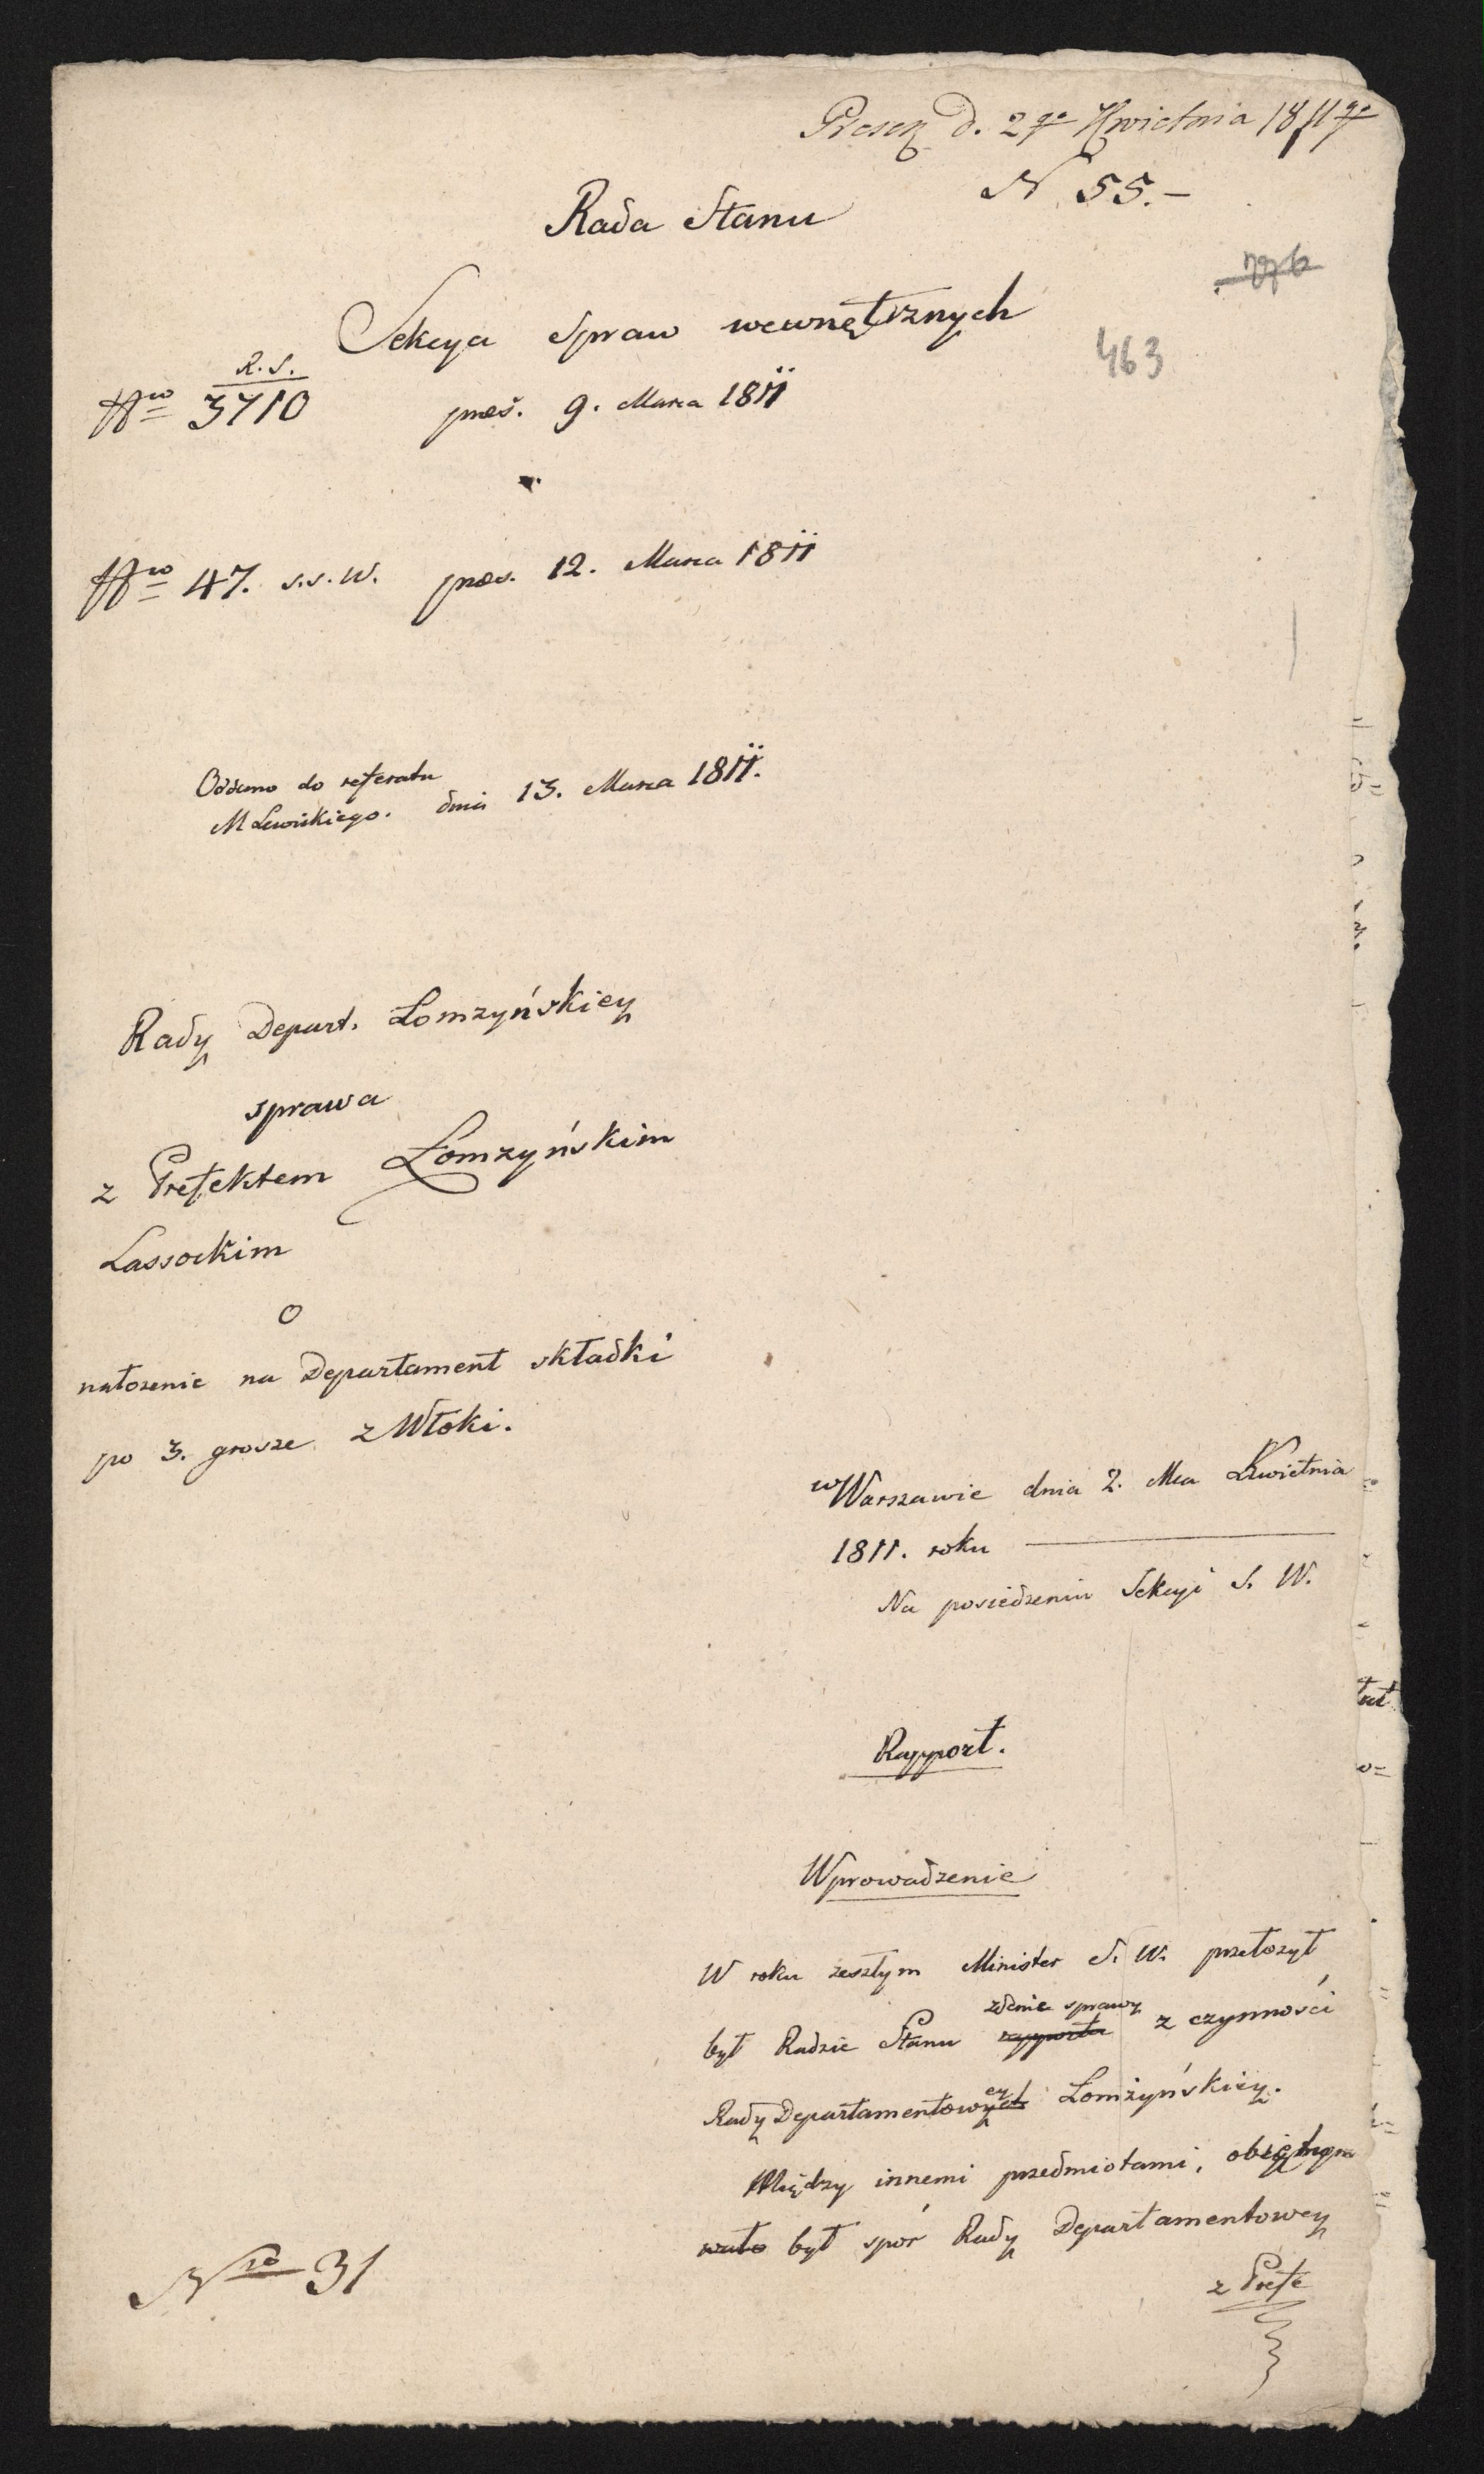 Presen d. 2go Kwietnia 1811go
N 55.-
Rada Stanu
Sekcya Spraw wewnętrznych
463
R. S.
Nro 3710 præs. 9. Marca 1811
Nro 47. S.S.W. præs. 12. Marca 1811
Oddano do referatu
M Lewińskiego. dnia 13. Marca 1811.
Rady Depart. Łomzyńskiey
sprawa
z Prefektem Łomzyńskim
Lassockim
o
nałozenie na Departament składki
po 3. grosze z Włoki.
w Warszawie dnia 2. Mca Kwietnia
1811. roku
Na posiedzeniu Sekcyi S. W.
Rapport.
Wprowadzenie
W roku zeszłym Minister S. W. przełozył
zdanie sprawy
był Radzie Stanu rapporta z czynności
Rady Departamentowey Łomżyńskiey.
Między innemi przedmiotami, obiętym
wało był spór Rady Departamentowey
z Prefe
Nro 31